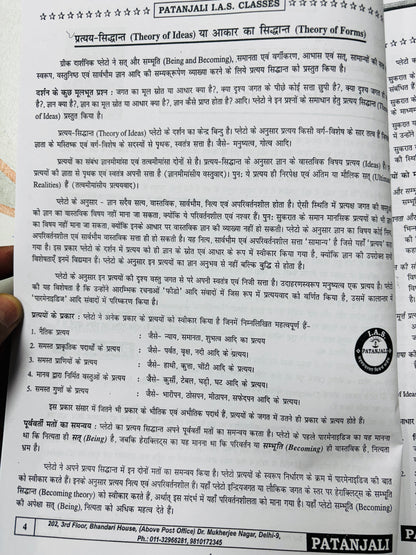 PATANJALI I.A.S. CLASSES
प्रत्यय-सिद्धान्त (Theory of Ideas) या आकार का सिद्धान्त (Theory of Forms)
ग्रीक दार्शनिक प्लेटो ने सत् और सम्भूति (Being and Becoming), समानता एवं वर्गीकरण, आभास एवं सत्, सामान्यों की
स्वरूप, वस्तुनिष्ठ एवं सार्वभौम ज्ञान आदि की सम्यक्रूपेण व्याख्या करने के लिए प्रत्यय सिद्धान्त को प्रस्तुत किया है।
दर्शन के कुछ मूलभूत प्रश्न : जगत का मूल स्रोत या आधार क्या है?, क्या दृश्य जगत के पीछे कोई सत्ता छुपी है?, क्या दृश्य जगत
है?, ज्ञान क्या है?, ज्ञान का मूल स्रोत या आधार क्या है?, ज्ञान कैसे प्राप्त होता है? आदि। प्लेटो ने इन प्रश्नों के समाधान हेतु प्रत्यय सिद्धान्त (Theory
of Ideas) प्रस्तुत किया है।
प्रत्यय-सिद्धान्त (Theory of Ideas) प्लेटो के दर्शन का केन्द्र बिन्दु है। प्लेटो के अनुसार प्रत्यय किसी वर्ग-विशेष के सार तत्व हैं जिनकी
ज्ञाता के मस्तिष्क एवं वर्ग-विशेष के सदस्यों से पृथक, स्वतंत्र सत्ता है। जैसे- मनुष्यत्व, गोत्व आदि।
प्रत्ययों का संबंध ज्ञानमीमांसा एवं तत्वमीमांसा दोनों से है। प्रत्यय-सिद्धान्त के अनुसार ज्ञान के वास्तविक विषय प्रत्यय (Ideas) हैं।
प्रत्ययों की ज्ञाता से पृथक एवं स्वतंत्र अपनी सत्ता है (ज्ञानमीमांसीय वस्तुवाद)। पुन: ये प्रत्यय ही निरपेक्ष एवं अंतिम या मौलिक सत् (Ultimate
Realities) हैं (तत्वमीमांसीय प्रत्ययवाद)।
प्लेटो के अनुसार - ज्ञान सदैव सत्य, वास्तविक, सार्वभौम, नित्य एवं अपरिवर्तनशील होता है। ऐसी स्थिति में प्रत्यक्ष जगत की वस्तुओं
को ज्ञान का वास्तविक विषय नहीं माना जा सकता, क्योंकि ये परिवर्तनशील एवं नश्वर हैं। पुन: सुकरात के समान मानसिक प्रत्ययों को भी ज्ञान
का विषय नहीं माना जा सकता, क्योंकि इनके आधार पर वास्तविक ज्ञान की व्याख्या नहीं हो सकती। प्लेटो के अनुसार ज्ञान का विषय कोई नित्य
अपरिवर्तनशील एवं सार्वभौम वास्तविक सत्ता ही हो सकती है। यह नित्य, सार्वभौम एवं अपरिवर्तनशील सत्ता 'सामान्य' है जिसे यहाँ 'प्रत्यय' कहा
गया है। इस प्रकार प्लेटो के दर्शन में प्रत्यय को ही ज्ञान के स्रोत एवं आधार के रूप में स्वीकार किया गया है, क्योंकि ज्ञान की उपरोक्त सभी
विशेषताएँ इनमें विद्यमान हैं। प्लेटो के अनुसार इन प्रत्ययों का ज्ञान अनुभव से नहीं बल्कि बुद्धि से होता है।
प्लेटो के अनुसार इन प्रत्ययों की दृश्य वस्तु जगत से परे अपनी स्वतंत्र एवं निजी सत्ता है। उदाहरणस्वरूप मनुष्यत्व एक प्रत्यय है। प्लेटो
की यह विशेषता है कि उन्होंने आरम्भिक रचनाओं 'फीडो' आदि संवादों में जिस रूप में प्रत्ययवाद को वर्णित किया है, उसमें कालान्तर में
'पारमेनाइडिज' आदि संवादों में परिष्कार किया है।
प्रत्ययों के प्रकार : प्लेटो ने अनेक प्रकार के प्रत्ययों को स्वीकार किया है जिनमें निम्नलिखित महत्वपूर्ण हैं-
1. नैतिक प्रत्यय : जैसे- न्याय, समानता, शुभत्व आदि का प्रत्यय
2. समस्त प्राकृतिक पदार्थों के प्रत्यय : जैसे- पर्वत, वृक्ष, नदी आदि के प्रत्यय।
3. समस्त प्राणियों के प्रत्यय : जैसे- हाथी, कुत्ता, चींटी आदि के प्रत्यय।
4. मानव द्वारा निर्मित वस्तुओं के प्रत्यय : जैसे- कुर्सी, टेबल, घड़ी, घट आदि के प्रत्यय।
5. समस्त गुणों के प्रत्यय : जैसे- भारीपन, ठोसपन, मीठापन, सफेदपन आदि के प्रत्यय।
I.A.S.
PATANJALI
इस प्रकार संसार में जितने भी प्रकार के भौतिक एवं अभौतिक पदार्थ हैं, प्रत्ययों के जगत में उतने ही प्रकार के प्रत्यय होते हैं।
पूर्ववर्ती मतों का समन्वय : प्लेटो का प्रत्यय सिद्धान्त अपने पूर्ववर्ती मतों का समन्वय करता है। प्लेटो के पहले पारमेनाइडिज का यह मानना
था कि नित्यता ही सत् (Being) है, जबकि हेराक्लिट्स का यह मानना था कि परिवर्तन या सम्भूति (Becoming) ही वास्तविक है, नित्यता
भ्रम है।
प्लेटो ने अपने प्रत्यय सिद्धान्त में इन दोनों मतों का समन्वय किया है। प्लेटो प्रत्ययों के स्वरूप निर्धारण के क्रम में पारमेनाइडिज की बात
को स्वीकार करते हैं। इनके अनुसार प्रत्यय नित्य एवं अपरिवर्तनशील हैं। यहाँ प्लेटो इन्द्रियजगत या लौकिक जगत के स्तर पर हेराक्लिट्स के सम्भूति
सिद्धान्त (Becoming theory) को स्वीकार करते हैं, अर्थात् इस संदर्भ में यहाँ परिवर्तनशीलता को माना गया है। यहाँ प्लेटो सम्भूति (Becoming)
की अपेक्षा सत् (Being), नित्यता को अधिक महत्व देते हैं।
4
202, 3rd Floor, Bhandari House, (Above Post Office) Dr. Mukherjee Nagar, Delhi-9,
Ph.: 011-32966281, 9810172345
PATANJALI